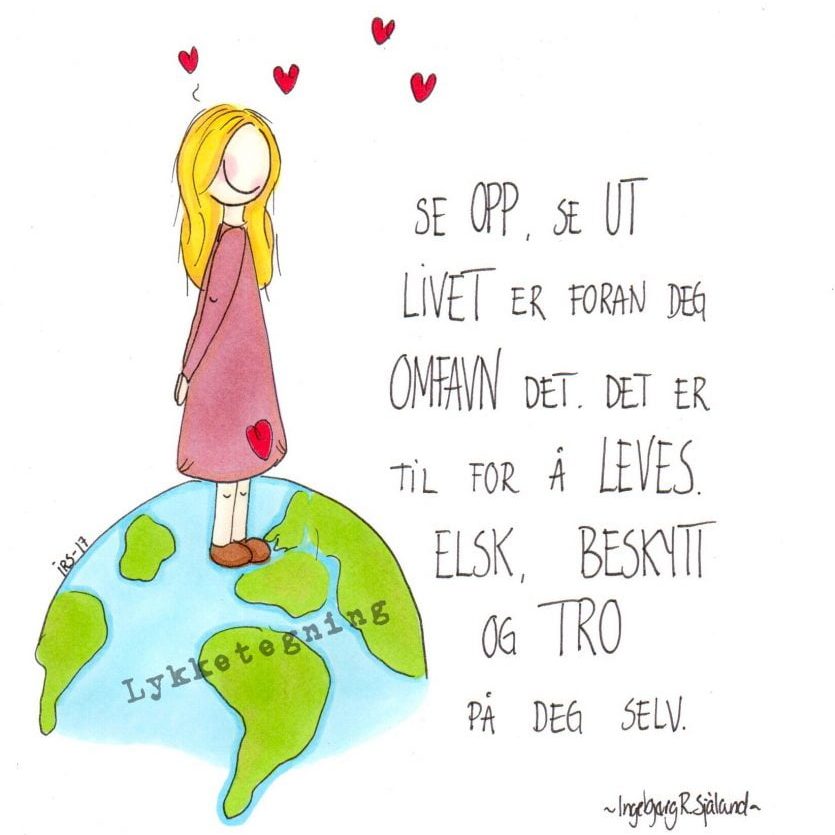 SE OPP, SE UT
LIVET ER FORAN DEG
OMFAVN DET. DET ER
TIL FOR Å LEVES.
ELSK, BESKYTT
OG TRO
PÅ DEG SELV.
IRS-17
Lykketegning
~Ingebjørg R. Sjåland~